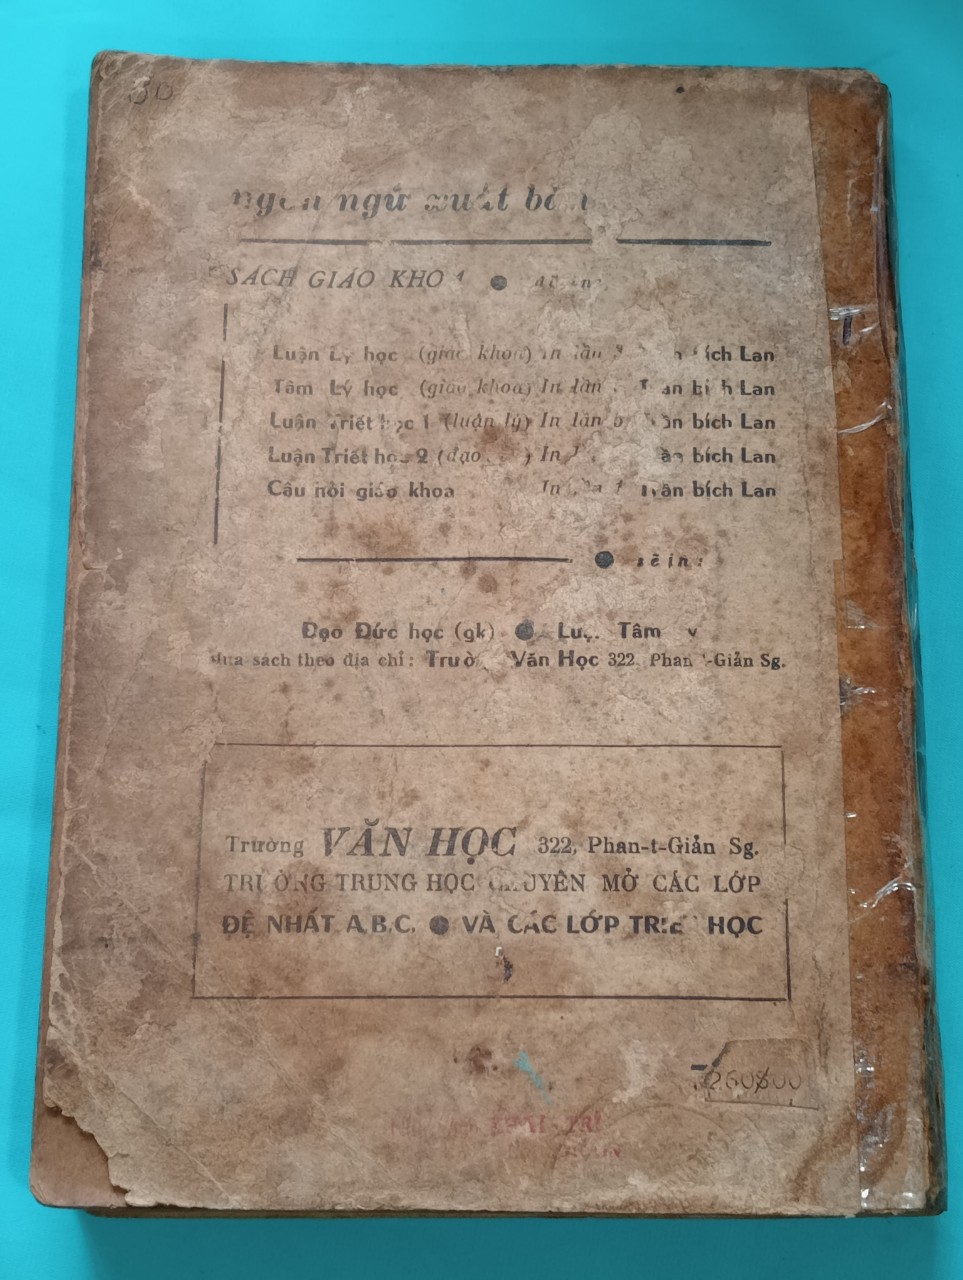 30
ngôn ngữ xuất bản
SÁCH GIÁO KHOA ● đã in:
Luận Lý học (giáo khoa) In lần Trần bích Lan
Tâm Lý học (giáo khoa) In lần Trần bích Lan
Luận Triết học 1 (luận lý) In lần Trần bích Lan
Luận Triết học 2 (đạo In Trần bích Lan
Câu nói giáo khoa In lần Trần bích Lan
● sẽ in:
Đạo Đức học (gk) ● Tâm
Mua sách theo địa chỉ: Trường Văn Học 322. Phan-t-Giản Sg.
Trường VĂN HỌC 322, Phan-t-Giản Sg.
TRƯỜNG TRUNG HỌC CHUYÊN MỞ CÁC LỚP
ĐỆ NHẤT A.B.C. ● VÀ CÁC LỚP TRIẾT HỌC
260$00
KHAI-TRÍ